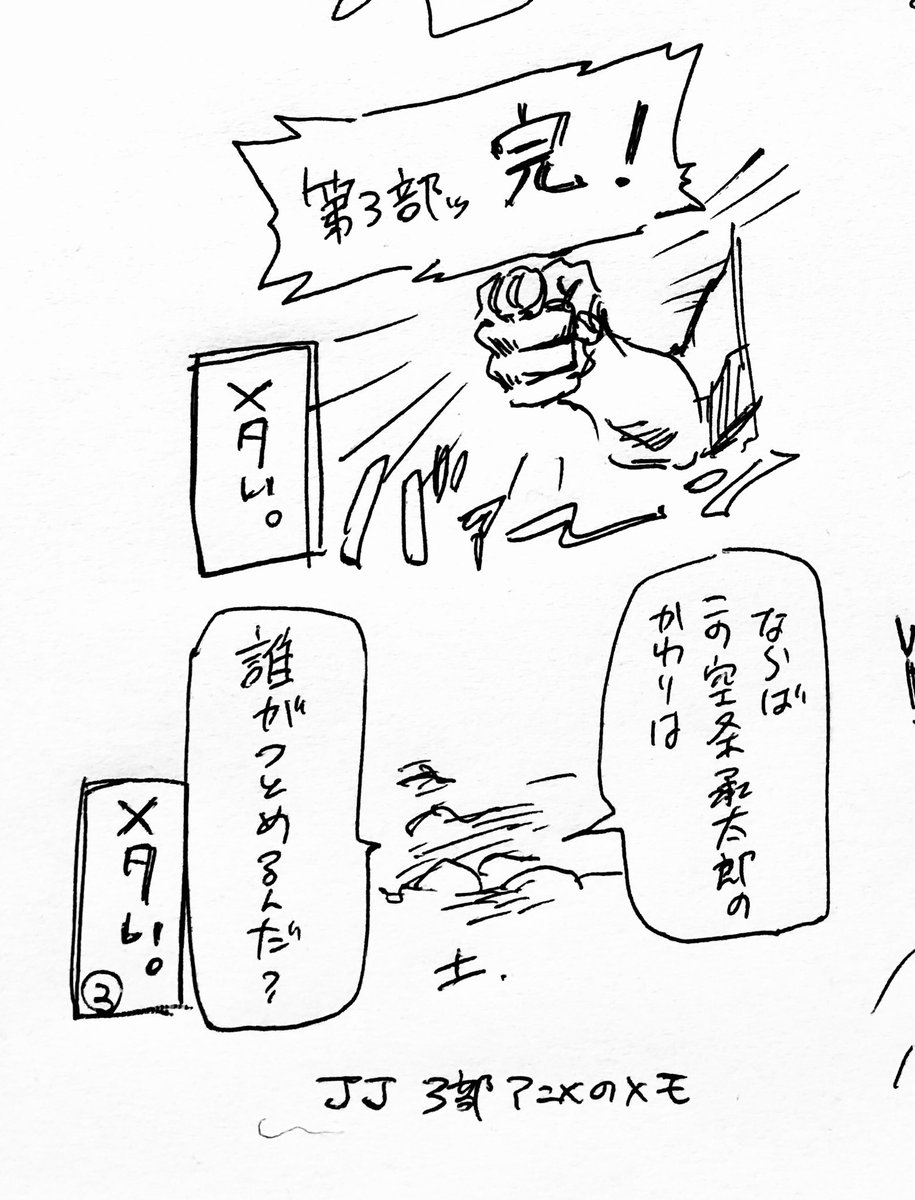 第3部ッ 完!
メタい。
バ
ならば
この空条承太郎の
かわりは
誰がつとめるんだ?
メタい。
3
土.
JJ 3部アニメのメモ